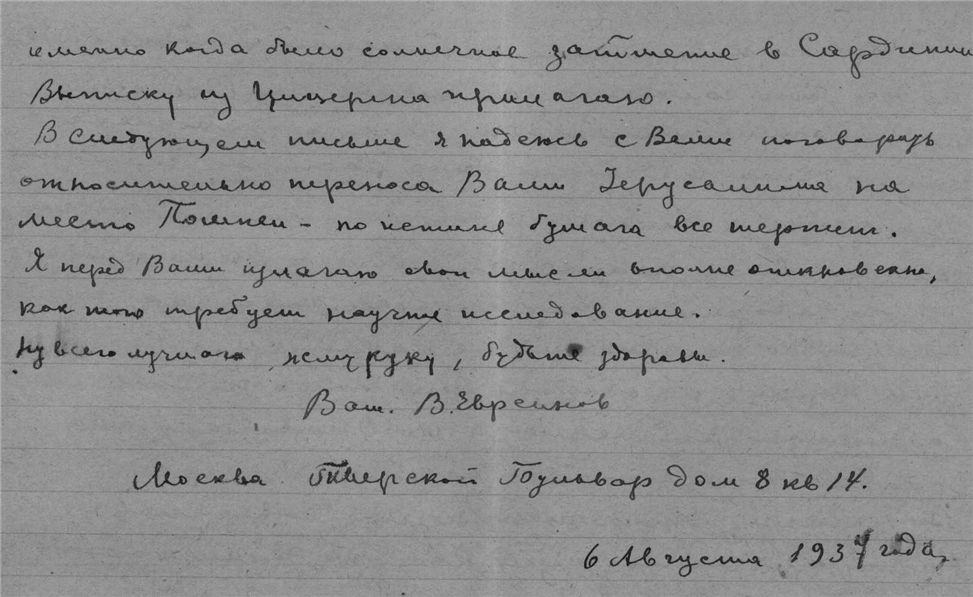 именно когда было солнечное затмение в Сардинии
Выписку из Цицерона прилагаю.
В следующем письме я надеюсь с Вами поговорить
относительно переноса Вами Іерусалима на
место Помпеи – по истине бумага все терпит.
Я перед Вами излагаю свои мысли вполне откновенно,
как того требует научное исследование.
Ну всего лучшаго, жму руку, будьте здоровы.
Ваш. В. Евреинов
Москва Тверской Бульвар дом 8 кв 14.
6 Августа 1937 года,